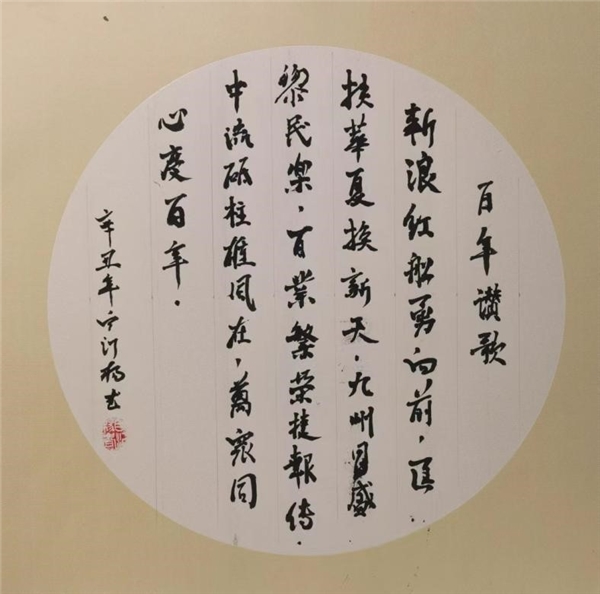 百年讚歌
斬浪红船勇向前，匡
扶華夏换新天。九州昌盛
黎民樂，百業繁荣捷報傳。
中流砥柱雄风在，萬衆同
心慶百年。
辛丑年